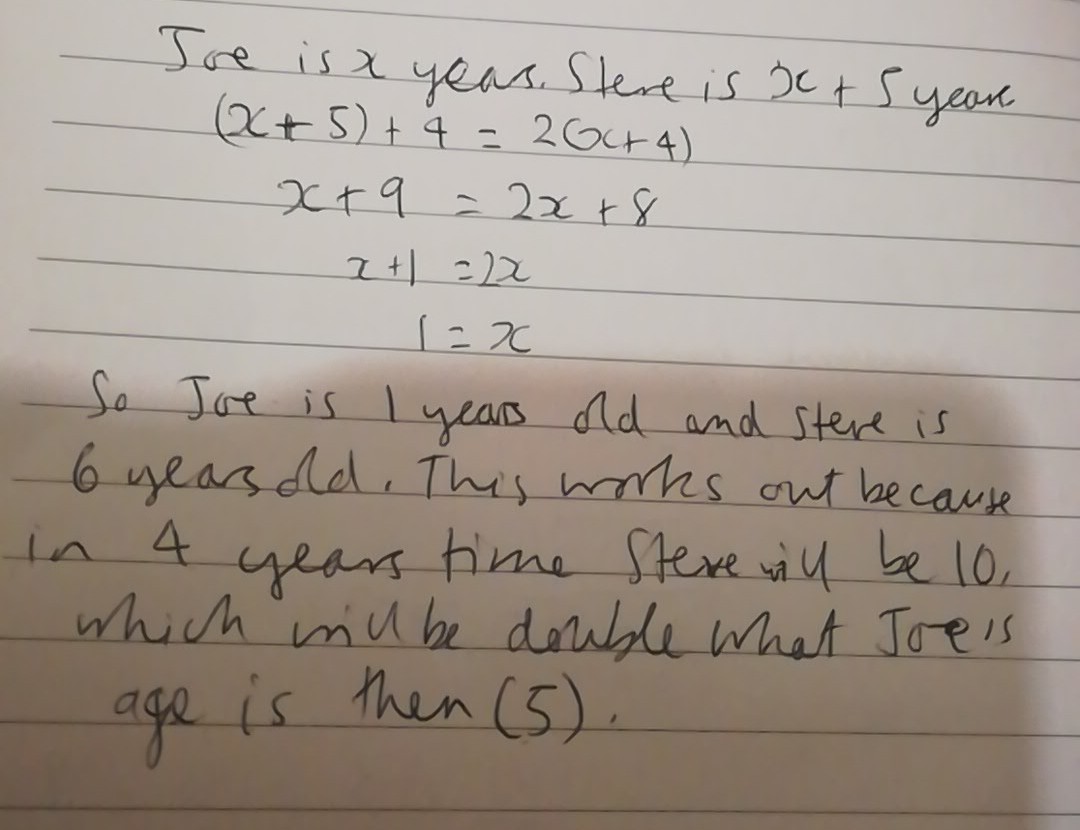 Joe is x years. Steve is x + 5 years
(x + 5) + 4 = 2(x + 4)
x + 9 = 2x + 8
x + 1 = 2x
1 = x
So Joe is 1 years old and Steve is
6 years old. This works out because
in 4 years time Steve will be 10,
which will be double what Joe is
age is then (5).